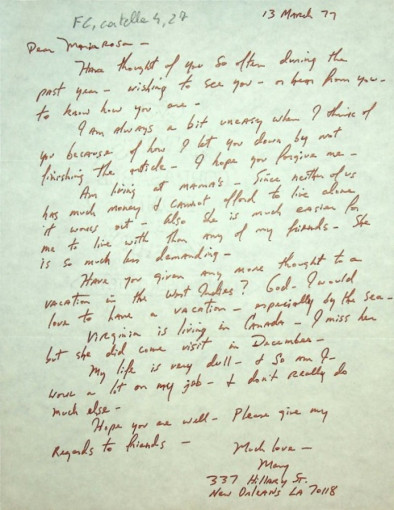 FC, cartella 4, 27
13 March 77
Dear Mariarosa -
Have thought of you so often during the
past year - wishing to see you - or hear from you -
to know how you are -
I am always a bit uneasy when I think of
you because of how I let you down by not
finishing the article - I hope you forgive me -
Am living at mama's - Since neither of us
has much money & cannot afford to live alone
it works out - Also she is much easier for
me to live with than any of my friends - She
is so much less demanding -
Have you given any more thought to a
vacation in the West Indies? God - I would
love to have a vacation - especially by the sea -
Virginia is living in Canada - I miss her
but she did come visit in December -
My life is very dull - & so am I -
work a lot on my job - & don't really do
much else -
Hope you are well - Please give my
Regards to friends -
Much love -
Mary
337 Hillary St.
New Orleans LA 70118